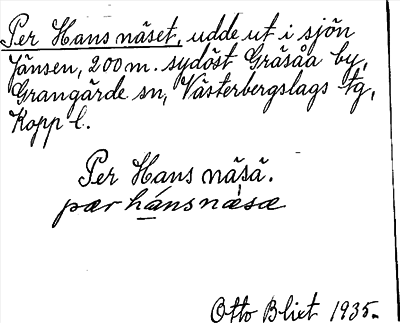 Per Hans näset, udde ut i sjön
Jänsen, 200 m. sydöst Gräsåa by,
Grangärde sn, Västerbergslags tg,
Kopp l.
Per Hans näsä.
pær hánsnæ̀sæ
Otto Blixt 1935.